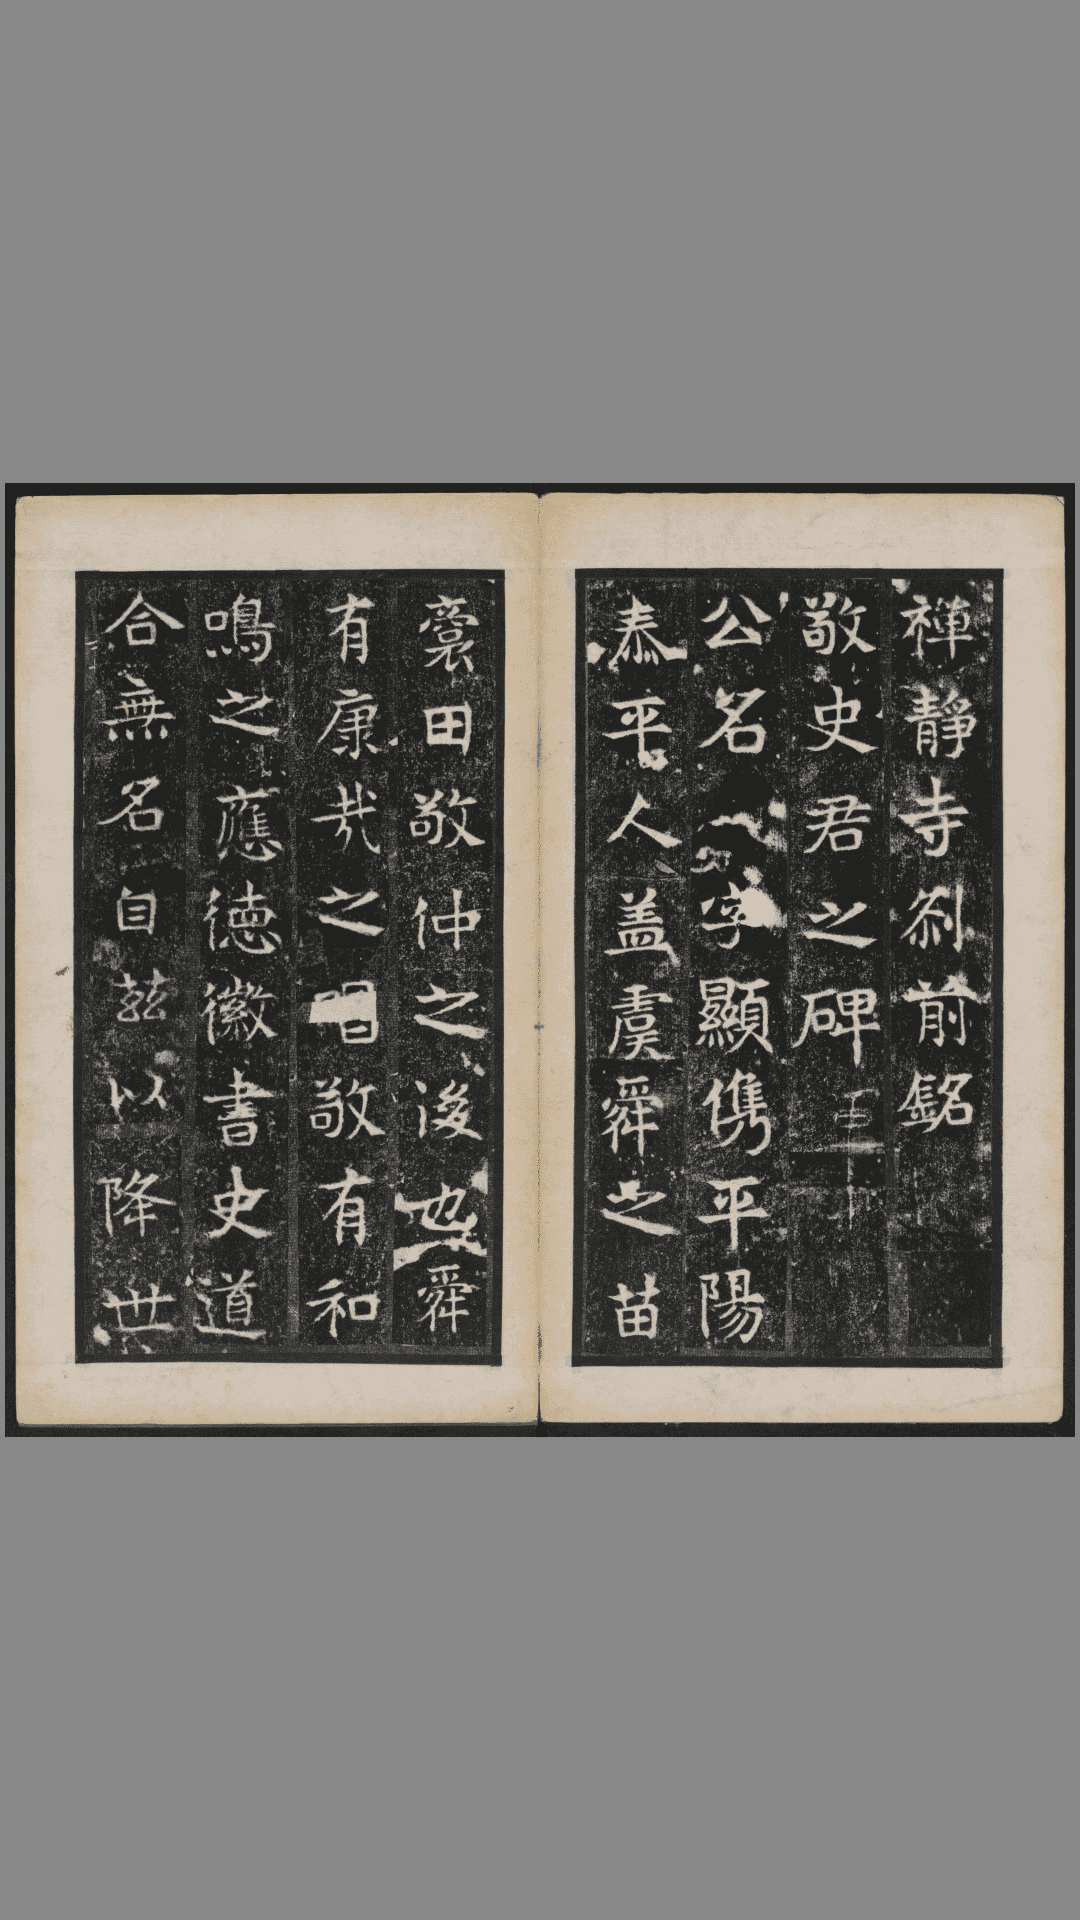 禅靜寺刹前銘
敬史君之碑
公名字顯儁平陽
泰平人盖虞舜之苗
裔田敬仲之後也舜
有康哉之唱敬有和
鳴之應德徽書史道
合無名自兹以降世